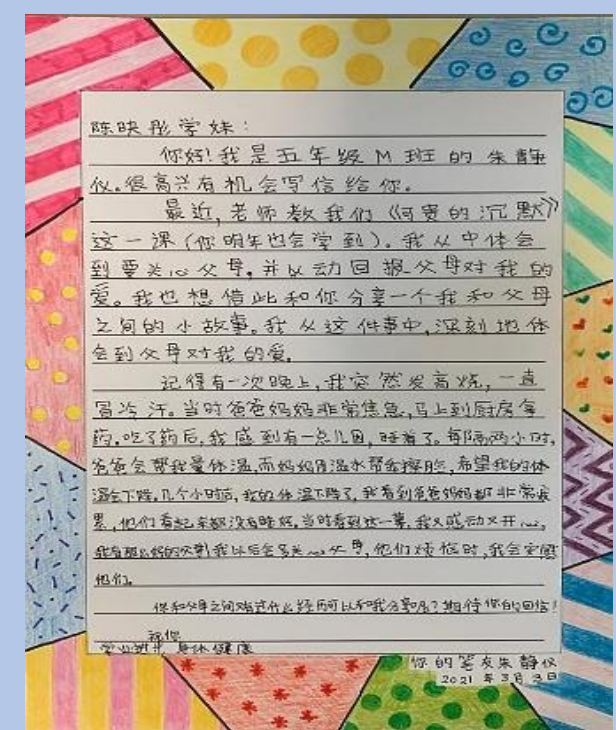 陈映彤学妹：
你好！我是五年级M班的朱静
仪。很高兴有机会写信给你。
最近，老师教我们《可贵的沉默》
这一课（你明年也会学到）。我从中体会
到要关心父母，并以动回报父母对我的
爱。我也想借此和你分享一个我和父母
之间的小故事。我从这件事中，深刻地体
会到父母对我的爱。
记得有一次晚上，我突然发高烧，一直
冒冷汗。当时爸爸妈妈非常焦急，马上到厨房拿
药。吃了药后，我感到有一点儿困，睡着了。每隔两小时，
爸爸会帮我量体温，而妈妈用温水帮我擦脸，希望我的体
温会下降。几个小时后，我的体温下降了，我看到爸爸妈妈都非常疲
累，他们看起来都没有睡好。当时看到这一幕，我又感动又开心，
我有那么好的父母！我以后会多关心父母，他们烦恼时，我会安慰
他们。
你和父母之间有什么经历可以和我分享呢？期待你的回信！
祝你
学业进步 身体健康
你的笔友朱静仪
2021年3月3日